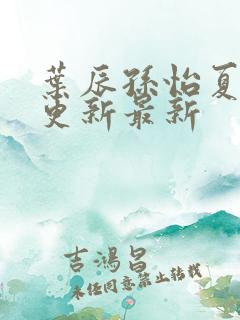 葉辰孫怡夏
更新最新
吉鴻昌
未經同意禁止轉載